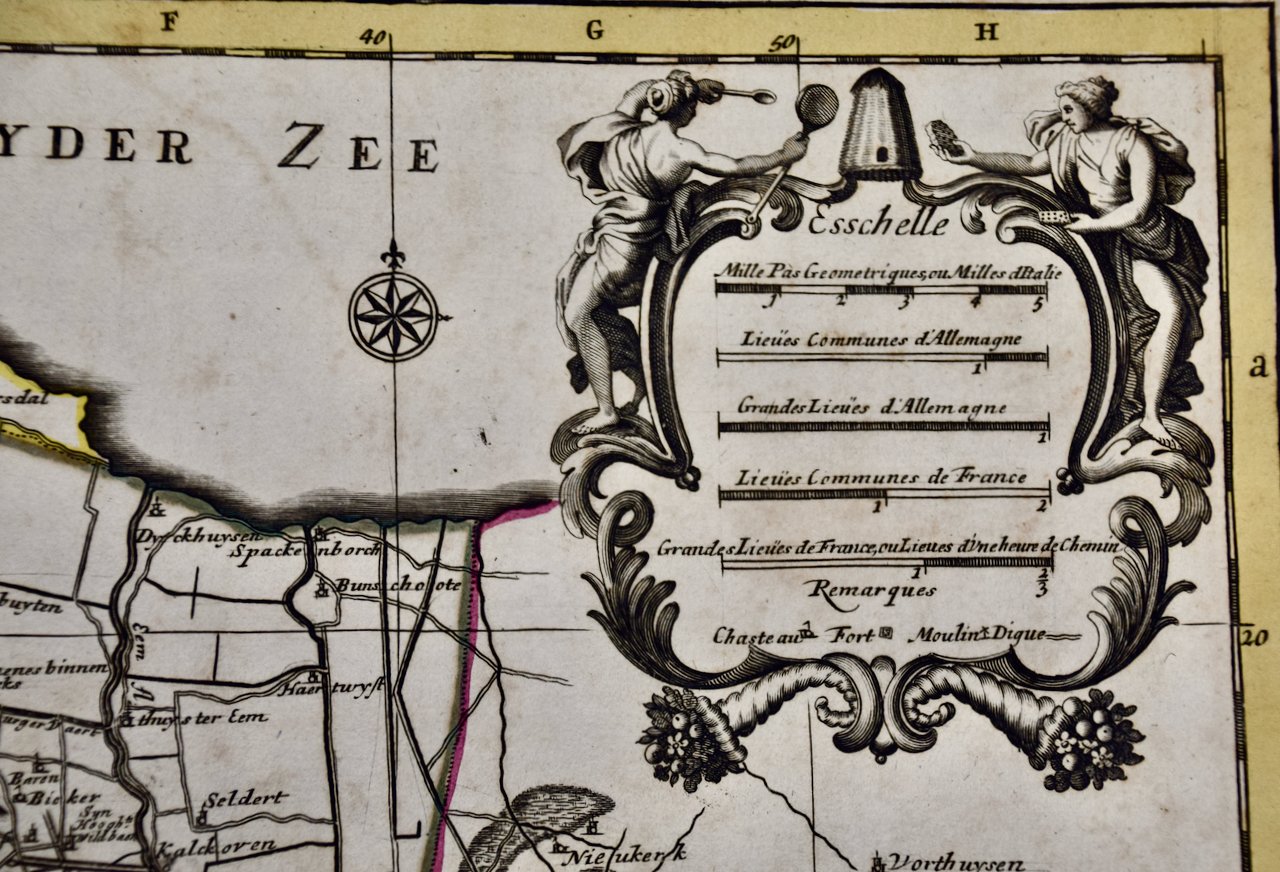 F
G
H
40
50
YDER ZEE
Esschelle
Mille Pas Geometriques, ou Milles d'Italie
1 2 3 4 5
Lieües Communes d'Allemagne
1
Grandes Lieües d'Allemagne
1
Lieües Communes de France
1 2
Grandes Lieües de France, ou Lieues d'Vne heure de Chemin
1 2/3
Remarques
Chasteau Fort Moulin Dique
a
20
sdal
Dyckhuysen
Spackenborch
Bunschoote
buyten
Eem
nenes binnen
Haerturyst
A
thuys ter Eem
Baren
Bieker
Seldert
Kalckoven
Nieukerk
Vorthuysen